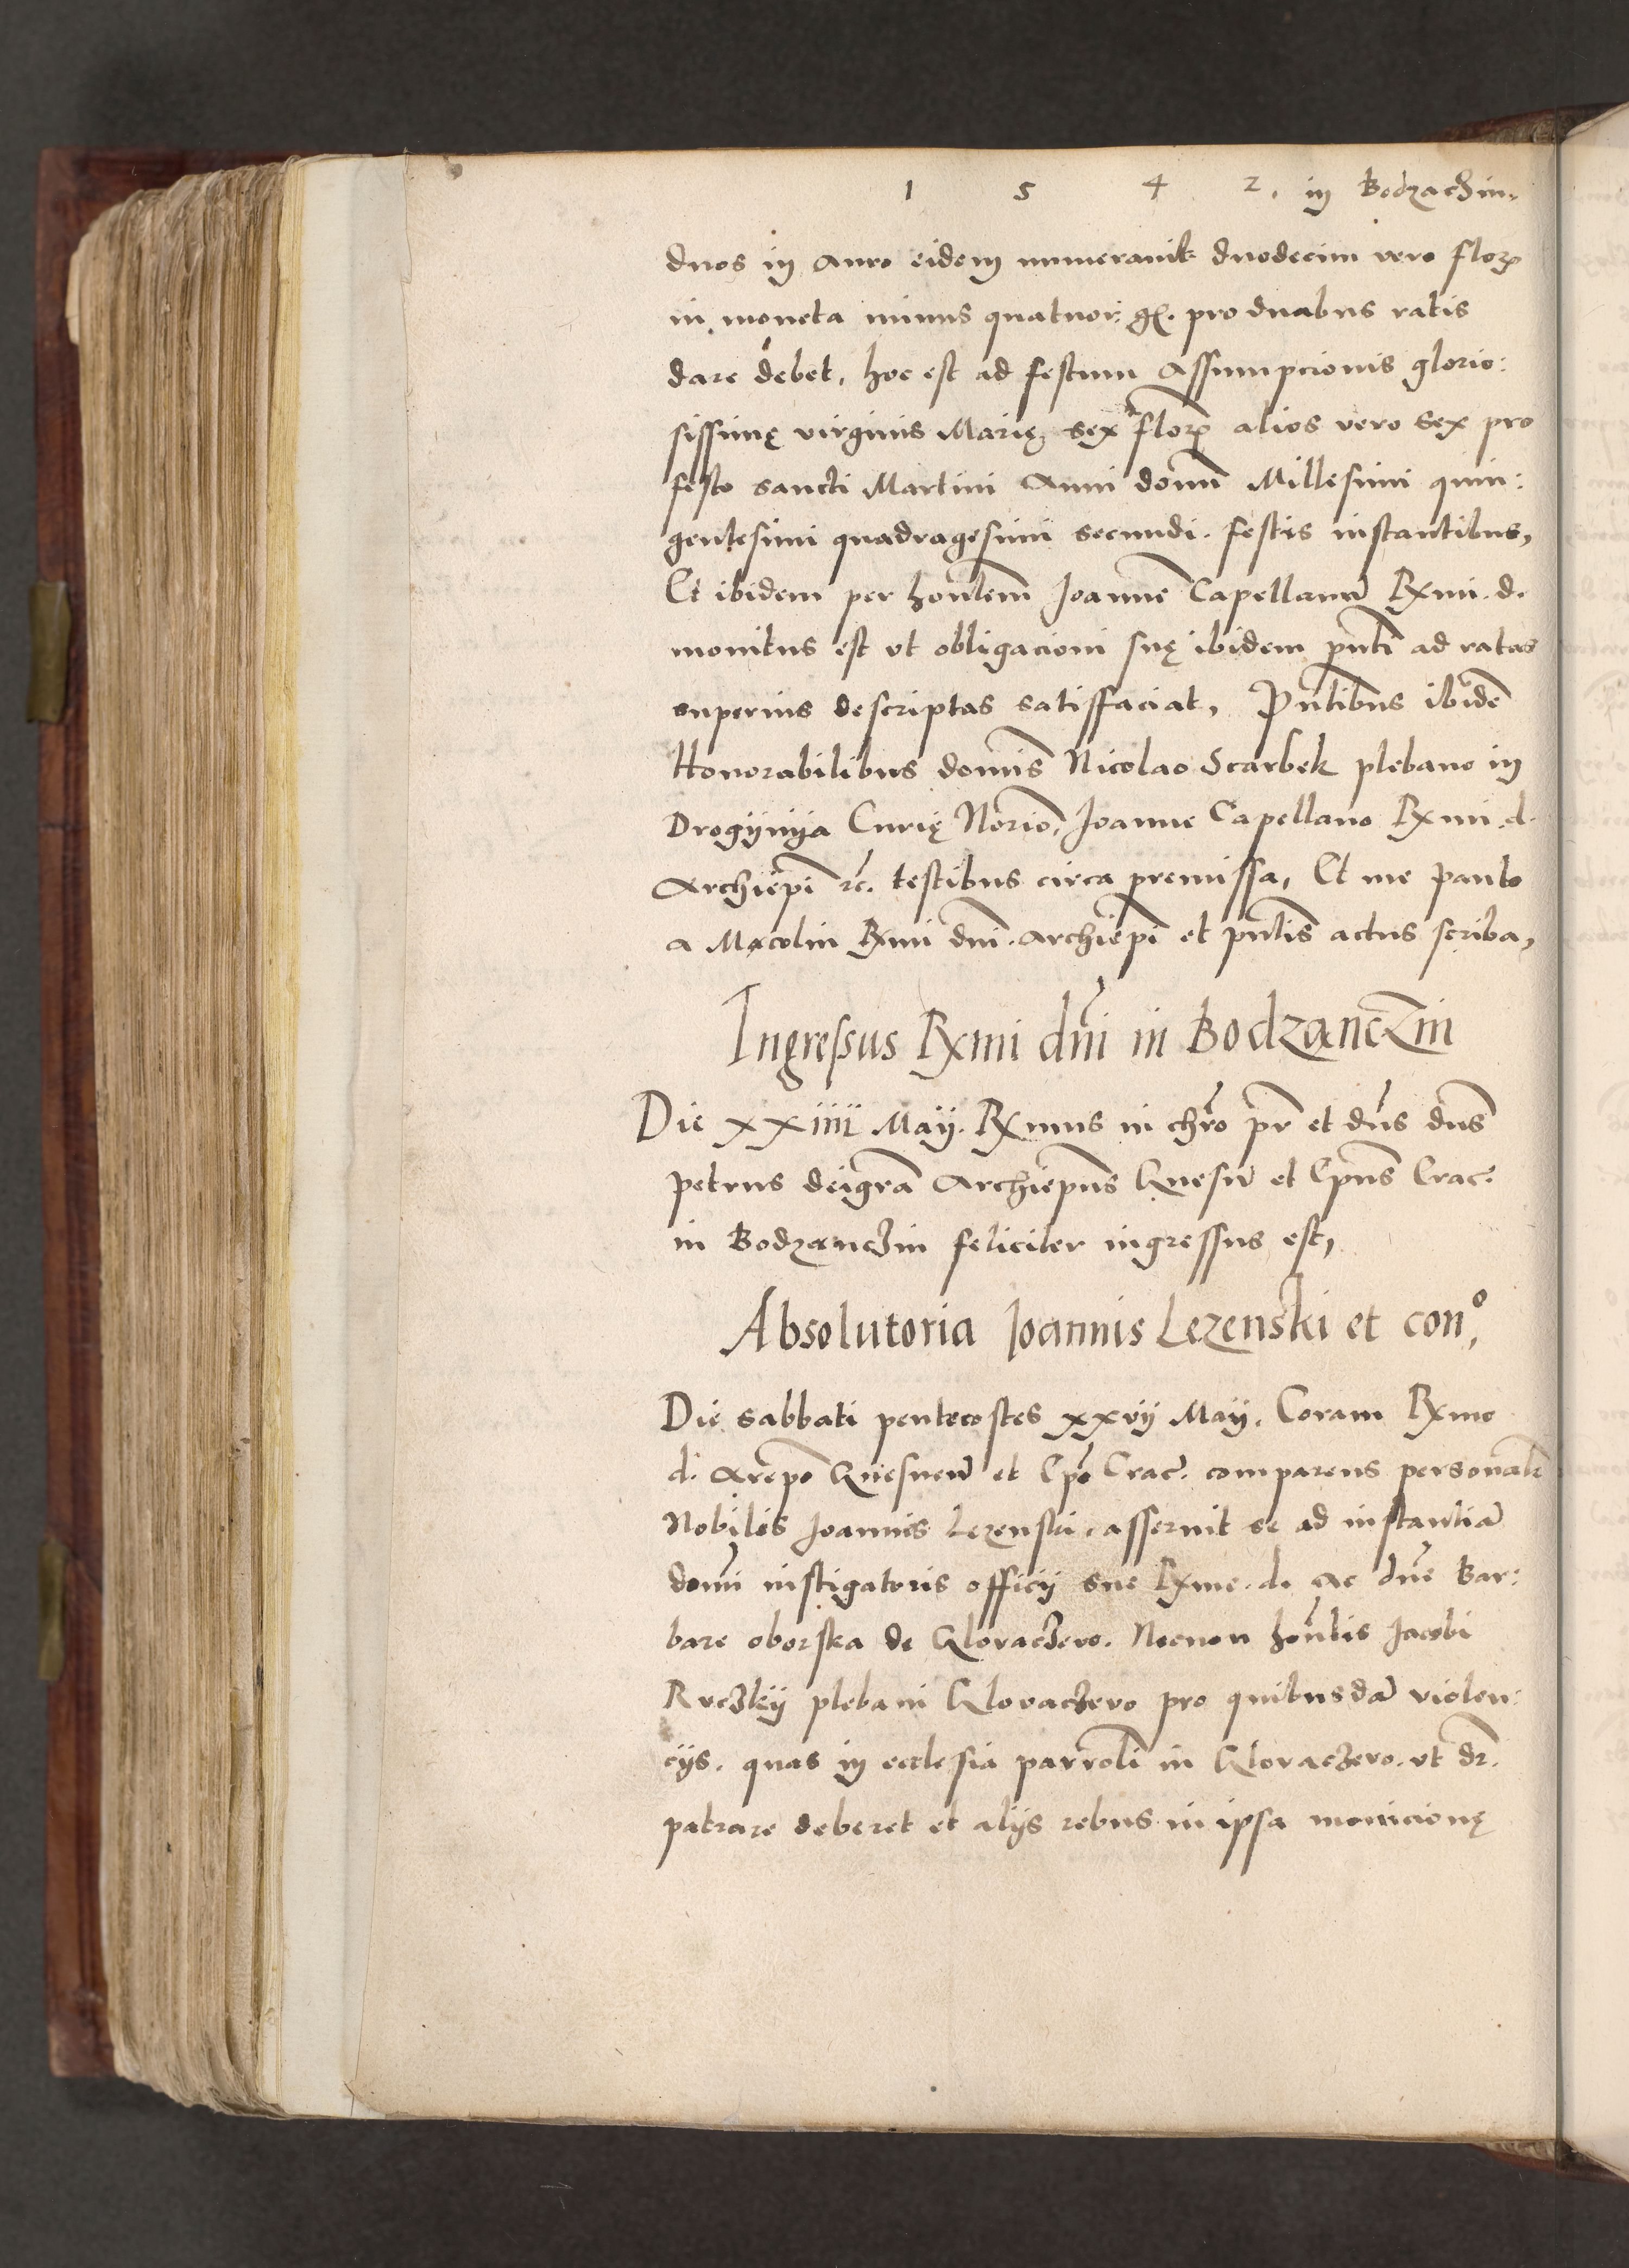 1 5 4 2. in Bodzachin.
duos in auro eidem numeravit duodecim vero florꝫ
in moneta minus quatuor gͬ. pro duabus ratis
dare debet, hoc est ad festum Assumpcionis glorio:
sissimę virginis Marię, sex florꝫ alios vero sex pro
festo sancti Martini Anni domī Millesimi quin:
gentesimi quadragesimi secundi. festis instantibus,
Et ibidem per honlem̄ Joannē Capellanū Rxmi. d.
monitus est vt obligacioni suę ibidem pn̄ti ad ratas
superius descriptas satisffaciat, Pn̄tibus ibidē
Honorabilibus domīs Nicolao Scarbek plebano in
Drogÿnÿa Curię Norīo, Joanne Capellano Rxmi. d.
Archiepī ꝛc. testibus circa premissa, Et me paulo
a Mącolin Rxmi dnī. archiepī et pn̄tis actus scriba,
Ingressus Rxmi dn̄i in Bodząnczin
Die xxiiii Maÿ. Rxmus in chrō pr̄ et dn̄s dn̄s
petrus deigrā Archiepūs Gnesn̄ et Epūs Crac̄.
in Bodząnczin feliciter ingressus est,
Absolutoria Joannis Lezenski et con°,
Die sabbati pentecostes xxvÿ Maÿ. Coram Rxmo
d. Arēpo Gnesnen̄ et Epō Crac̄. comparens personalr̄
Nobilis Joannis Lezenski. asseruit se ad instantiā
domī instigatoris officÿ sue Rxme. d. Ac dn̄e Bar:
bare oborska de Glovaczevo. Necnon hon̄lis Jacobi
Ruczkÿ plebani Glovaczevo pro quibusdā violen:
cÿs. quas in ecclesia parrolī in Glovaczevo. vt dr̄.
patrare deberet et alÿs rebus in ipsa monicionę